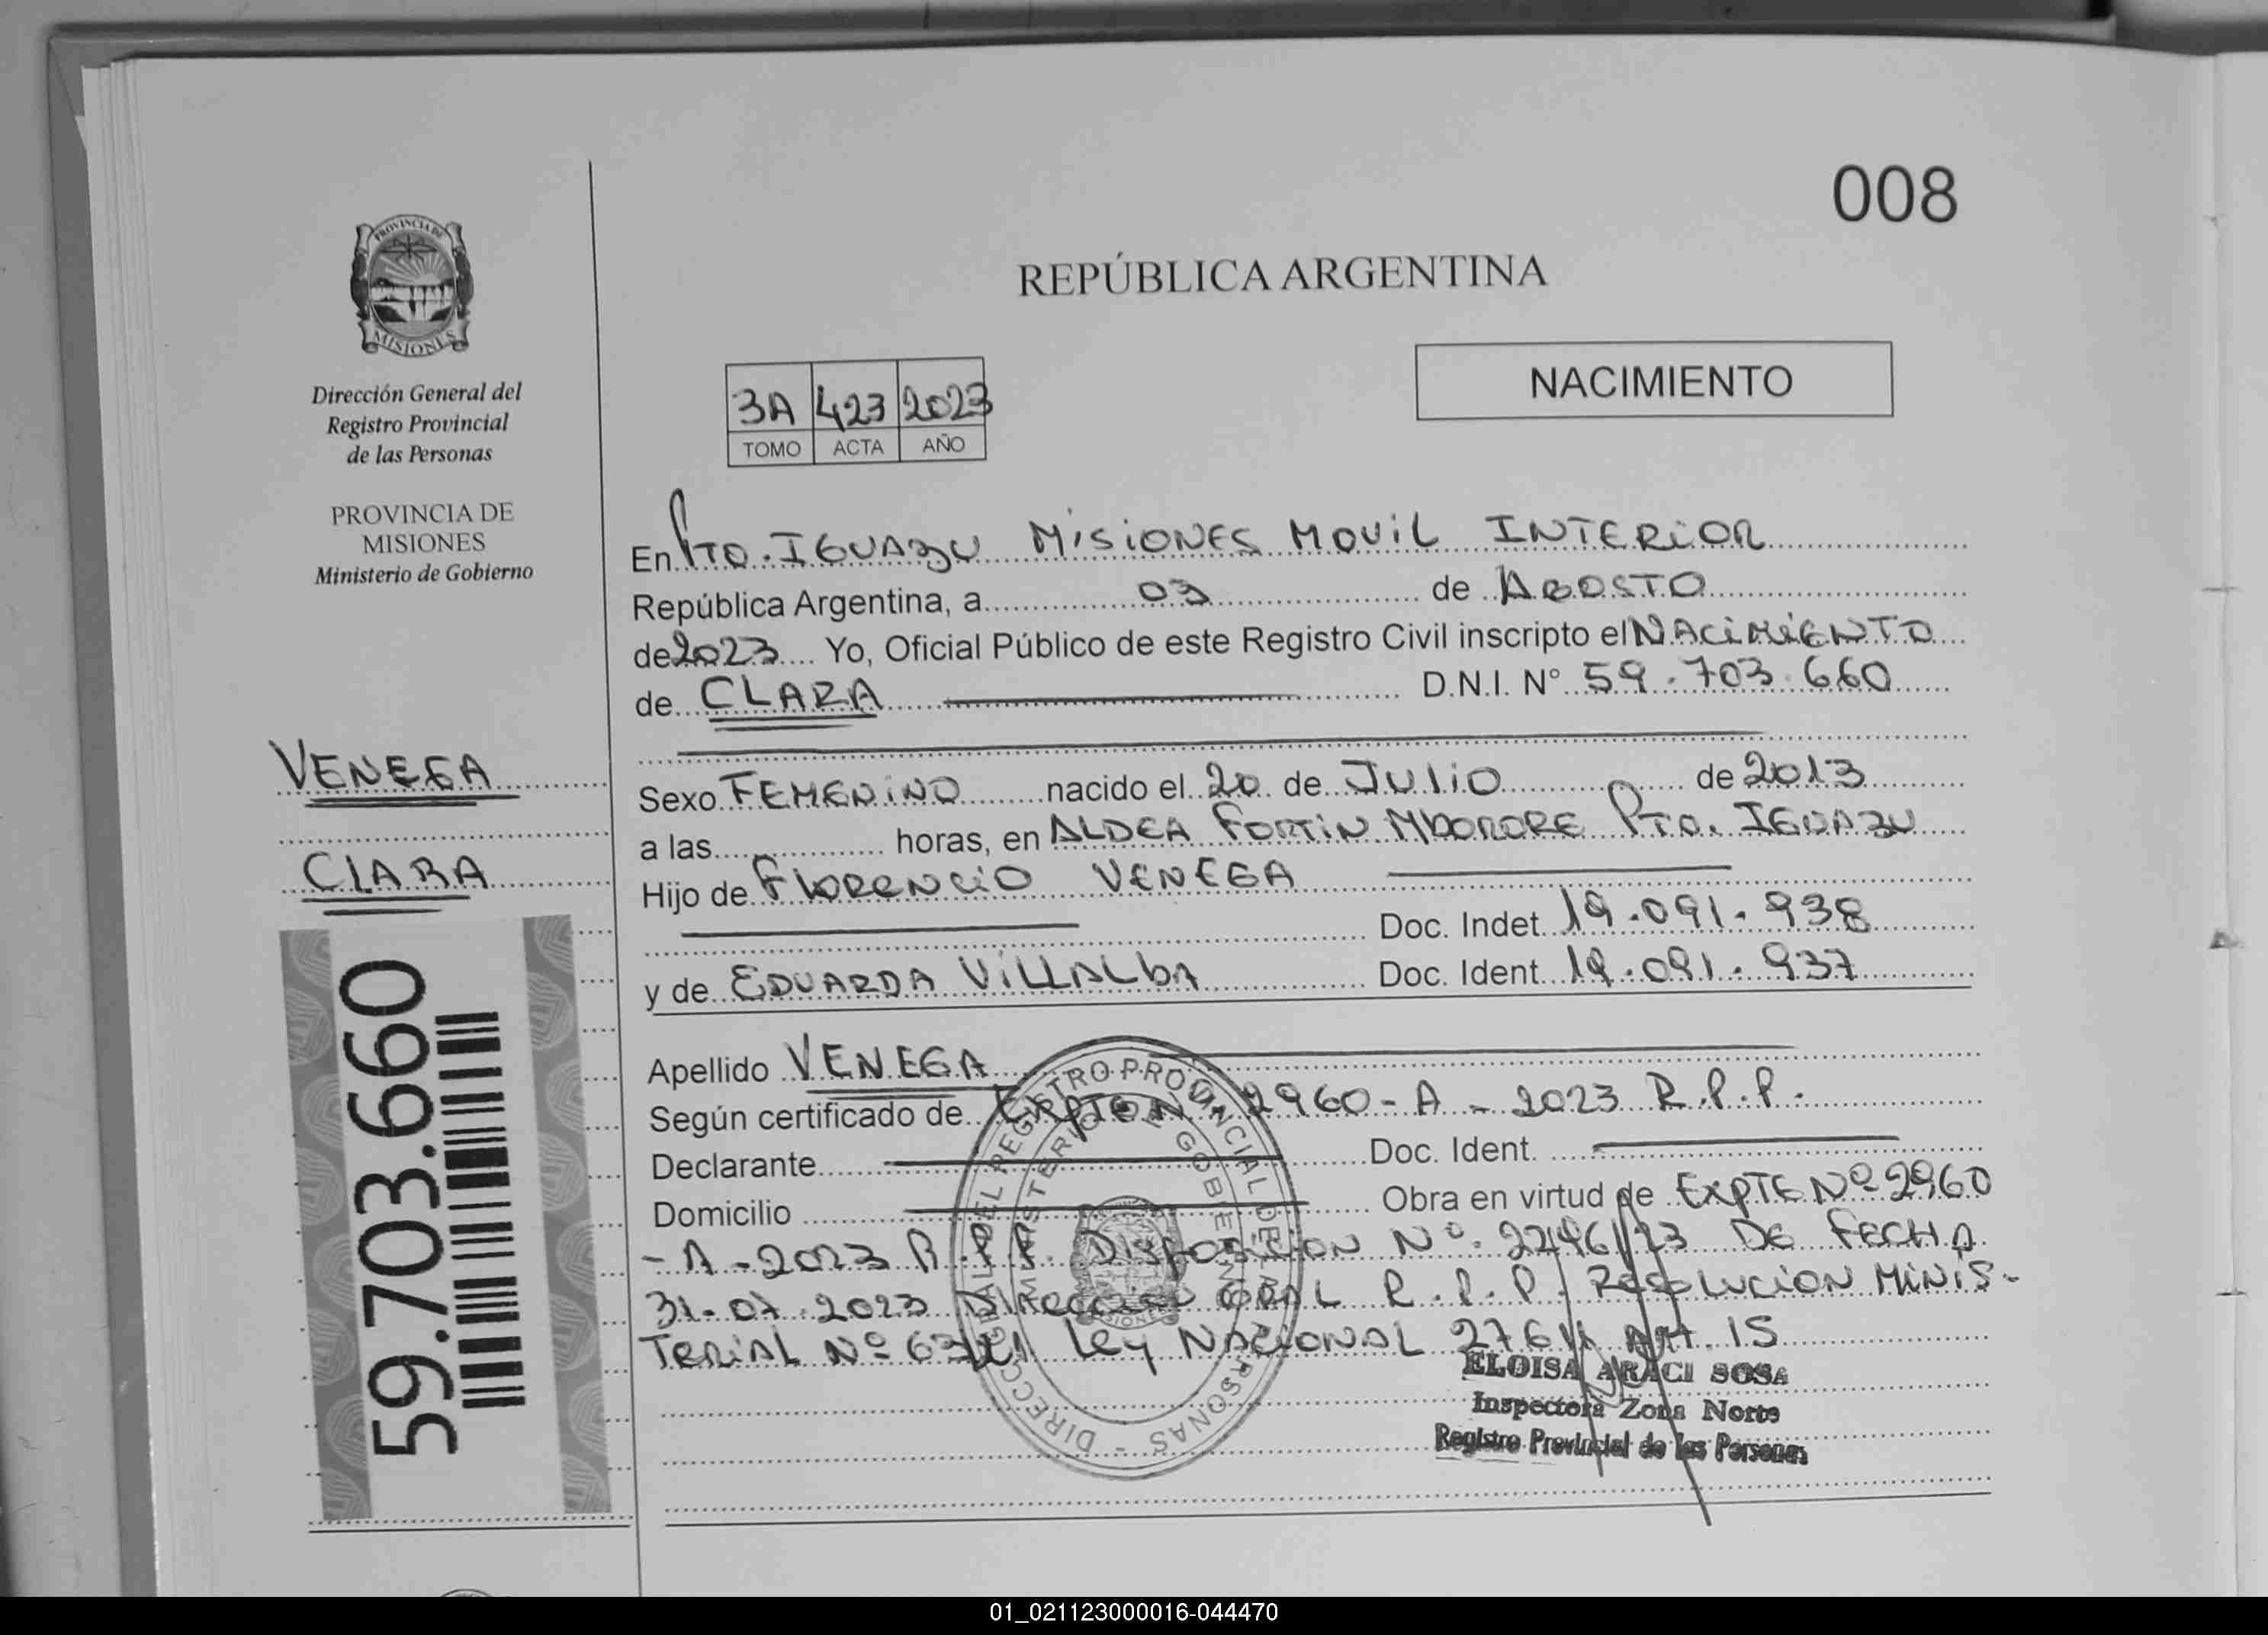 008
REPÚBLICA ARGENTINA
NACIMIENTO
PROVINCIA DE
MISIONES
Dirección General del
Registro Provincial
de las Personas
PROVINCIA DE
MISIONES
Ministerio de Gobierno
VENEGA
CLARA
59.703.660
3A 423 2023
TOMO ACTA AÑO
En Pto. IGUAZU MISIONES MOVIL INTERIOR
República Argentina, a 03 de AGOSTO
de 2023 Yo, Oficial Público de este Registro Civil inscripto el NACIMIENTO
de CLARA D.N.I. N° 59.703.660
Sexo FEMENINO nacido el 20 de JULIO de 2013
a las horas, en ALDEA FORTIN MBORORE Pto. IGUAZU
Hijo de FLORENCIO VENEGA
Doc. Indet. 19.091.938
y de EDUARDA VILLALBA Doc. Ident. 19.091.937
Apellido VENEGA
Según certificado de EXPTE Nº 2960-A-2023 R.P.P.
Declarante Doc. Ident.
Domicilio Obra en virtud de EXPTE Nº 2960
-A-2023 R.P.P. DISPOSICION Nº. /23 DE FECHA
31-07-2023 DIRECCION GRAL R.P.P. RESOLUCION MINIS-
TERIAL Nº Ley NACIONAL 27611 Art. 15
DIRECC. GRAL. DEL REGISTRO PROVINCIAL DE LAS PERSONAS -
MINISTERIO DE GOBIERNO
MISIONES
ELOISA ARACI SOSA
Inspectora Zona Norte
Registro Provincial de las Personas
01_021123000016-044470